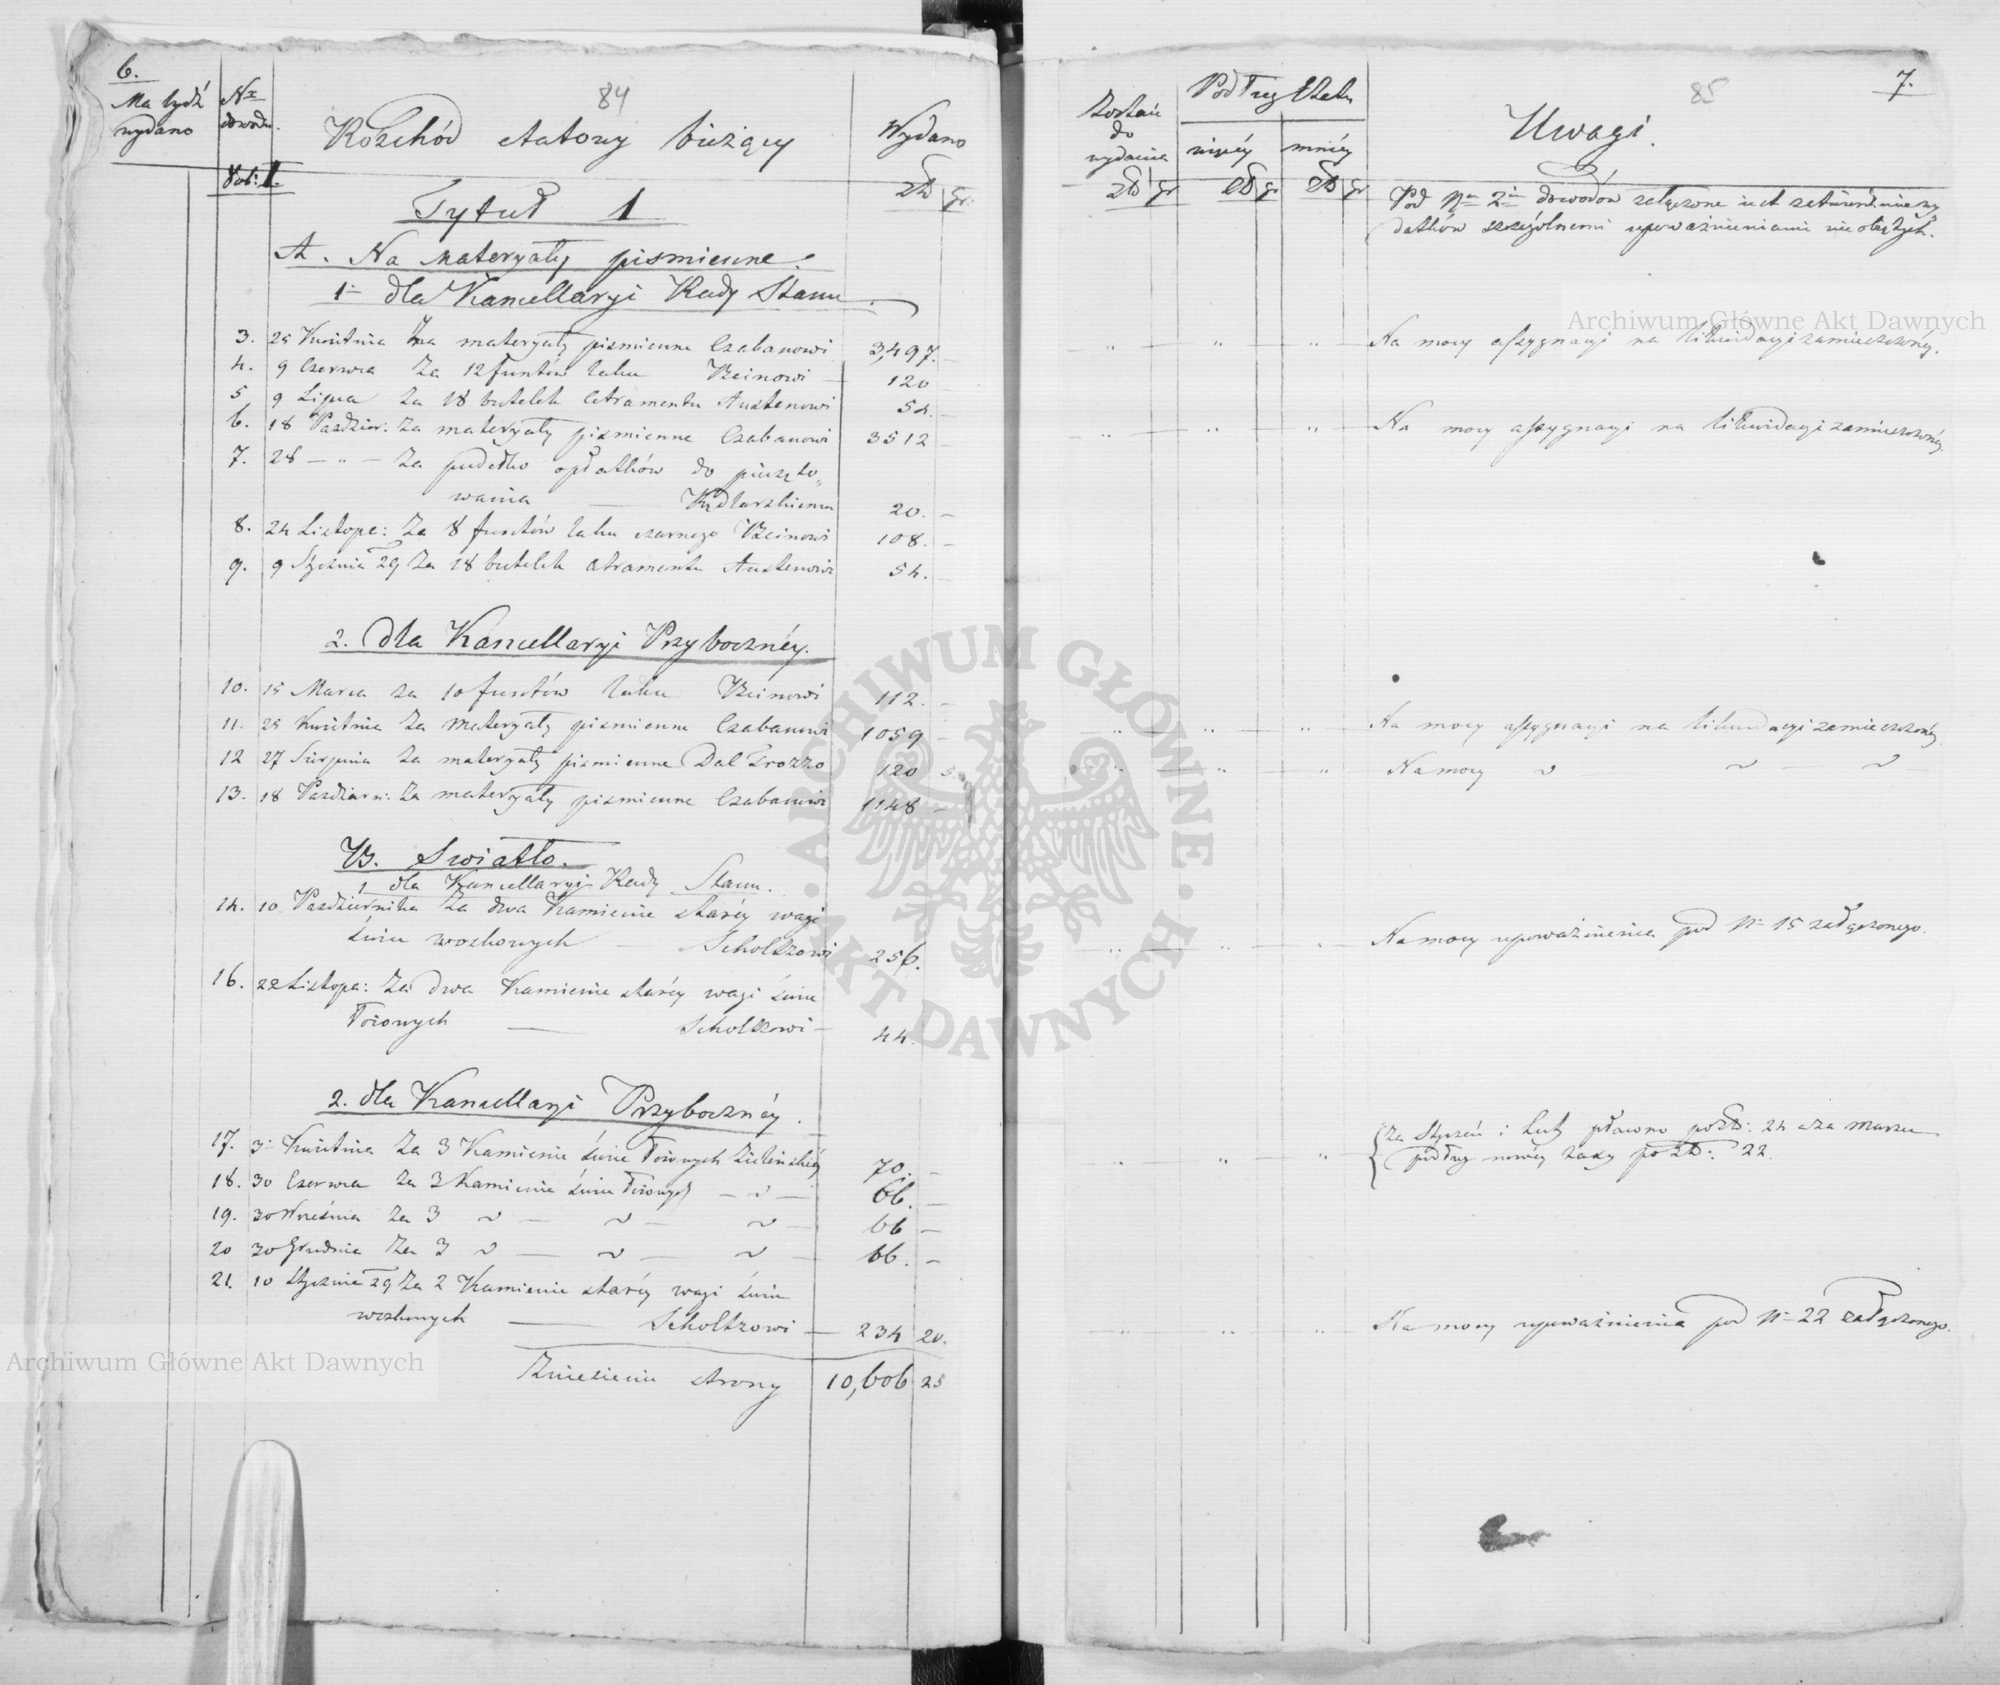 6.
84
Ma bydź wydano
Nr dowodu.
Rozchód etatowy bieżący
Wydano
Vol: I.
Zł gr.
Tytuł 1
A. Na materyały pismienne.
1. dla Kancellaryi Rady Stanu.
3. 25 Kwietnia Za materyały pismienne Czabanowi 3,497. –
4. 9 Czerwca Za 12 funtów laku Beinowi – 120 –
5. 9 Lipca Za 18 butelek atramentu Austenowi 54. –
6. 18 Paździer: Za materyały pismienne Czabanowi 3512 –
7. 28 – " – Za pudełko opłatków do pieczęto„
wania — Kędlarskiemu 20. –
8. 24 Listopa: Za 8 funtów laku czarnego Beinowi 108. –
9. 9 Stycznia 29 Za 18 butelek atramentu Austenowi 54. –
2. dla Kancellaryi Przybocznéy.
10. 15 Marca za 10 funtów laku Beinowi 112. –
11. 25 Kwietnia Za materyały pismienne Czabanowi 1059 –
12 27 Sierpnia Za materyały pismienne Dal Trozzo 120 5
13. 18 Paździer: Za materyały pismienne Czabanowi 1148 –
B. Swiatło.
1. dla Kancellaryi Rady Stanu.
14. 10 Października Za dwa Kamienie staréy wagi
świec woskowych – Scholtzowi 256.
16. 22 Listopa: Za dwa Kamienie staréy wagi świec
łoiowych — Scholtzowi – 44.
2. dla Kancellaryi Przybocznéy.
17. 3 Kwietnia Za 3 Kamienie świec łoiowych Zielińskiéy 70. –
18. 30 Czerwca Za 3 Kamienie świec łoiowych – " – 66. –
19. 30 Września Za 3 " – " – " – 66 –
20 30 Grudnia Za 3 " – " – " – 66. –
21. 10 Stycznia 29 Za 2 Kamienie staréy wagi świec
woskowych — Scholtzowi – 234 20.
Zniesienie strony 10,606 25
7.
85
Zostaie do wydania
Podług Etatu
więcéy
mniéy
Uwagi.
Zł gr
Zł gr
Zł gr
Pod Nrem 2im dowodów załączone iest zatwierdzenie wy„
datków szczególnemi upoważnieniami nie obiętych.
Na mocy assygnacyi na likwidacyi zamieszczonéy.
Na mocy assygnacyi na likwidacyi zamieszczonéy.
Na mocy assygnacyi na likwidacyi zamieszczonéy
Na mocy " – " – "
Na mocy upoważnienia pod Nr 15 załączonego.
Za Styczeń i Luty płacono po Zł: 24 a za Marzec
podług nowéy taxy po Zł: 22.
Na mocy upoważnienia pod Nr 22 załączonego.
Archiwum Główne Akt Dawnych
Archiwum Główne Akt Dawnych
ARCHIWUM GŁÓWNE AKT DAWNYCH